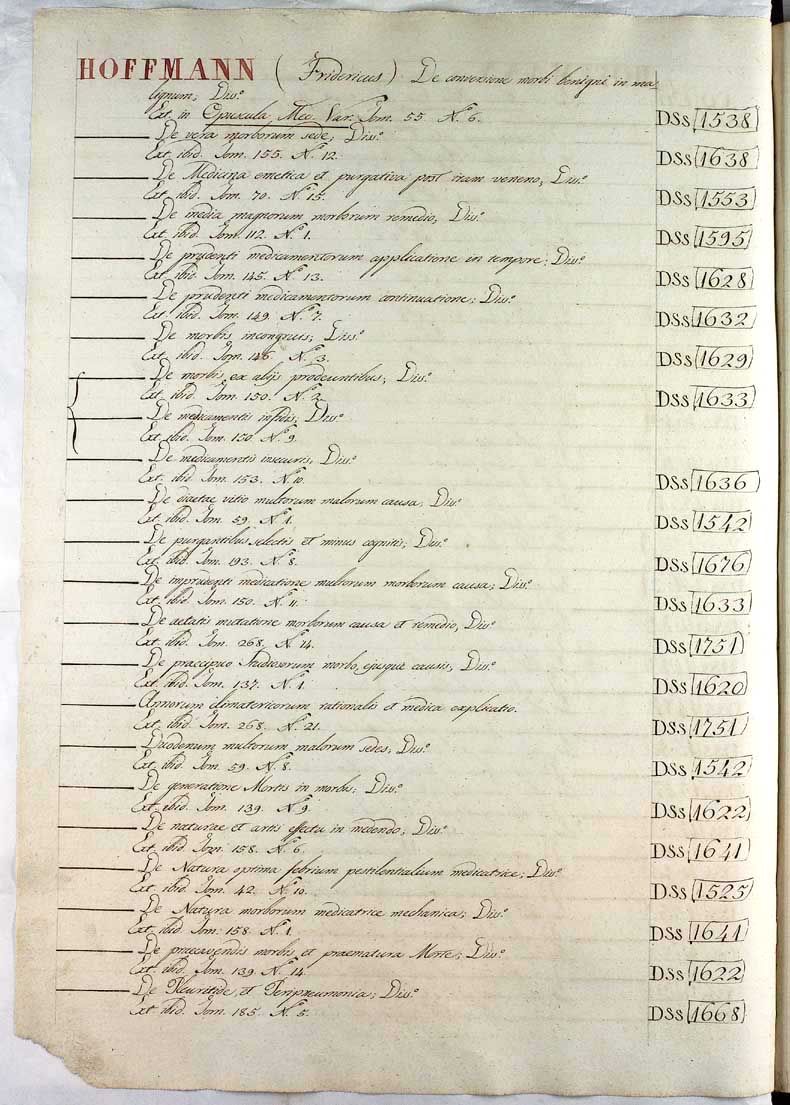 HOFFMANN (Fridericus) De conversione morbi benigni in ma
lignum; Diss.
Ext. in Opuscula Med. Var. Tom. 55 N.º 6. DSs 1538
De vera morborum sede; Diss.
Ext. ibid. Tom. 155. N.º 12. DSs 1638
De Medicina emetica et purgativa post iram veneno; Diss.
Ext. ibid. Tom. 70. N.º 15. DSs 1553
De inedia magnorum morborum remedio; Diss.
Ext. ibid. Tom. 112. N.º 1. DSs 1595
De prudenti medicamentorum applicatione in tempore; Diss.
Ext. ibid. Tom. 145. N.º 13. DSs 1628
De prudenti medicamentorum continuatione; Diss.
Ext. ibid. Tom. 149. N.º 7. DSs 1632
De morbis incongruis; Diss.
Ext. ibid. Tom. 146. N.º 3. DSs 1629
De morbis ex alijs prodeuntibus; Diss.
Ext. ibid. Tom. 150. N.º 2. DSs 1633
De medicamentis infidis; Diss.
Ext. ibid. Tom. 150. N.º 9.
De medicamentis insecuris; Diss.
Ext. ibid. Tom. 153. N.º 10. DSs 1636
De diaetae vitio multorum malorum causa; Diss.
Ext. ibid. Tom. 59. N.º 1. DSs 1542
De purgantibus selectis et minus cognitis; Diss.
Ext. ibid. Tom. 193. N.º 8. DSs 1676
De imprudenti medicatione multorum morborum causa; Diss.
Ext. ibid. Tom. 150. N.º 11. DSs 1633
De aetatis mutatione morborum causa et remedio; Diss.
Ext. ibid. Tom. 268. N.º 14. DSs 1751
De praecipuo Studiosorum morbo, ejusque causis; Diss.
Ext. ibid. Tom. 137. N.º 1. DSs 1620
Annorum climatericorum rationalis et medica explicatio.
Ext. ibid. Tom. 268. N.º 21. DSs 1751
Duodenum multorum malorum sedes; Diss.
Ext. ibid. Tom. 59. N.º 8. DSs 1542
De generatione Mortis in morbis; Diss.
Ext. ibid. Tom. 139. N.º 9. DSs 1622
De naturae et artis effectu in medendo; Diss.
Ext. ibid. Tom. 158. N.º 6. DSs 1641
De Natura optima febrium pestilentialium medicatrice; Diss.
Ext. ibid. Tom. 42. N.º 10. DSs 1525
De Natura morborum medicatrice mechanica; Diss.
Ext. ibid. Tom. 158. N.º 1. DSs 1641
De praecavendis morbis et praematura Morte; Diss.
Ext. ibid. Tom. 139. N.º 14. DSs 1622
De Pleuritide et Peripneumonia; Diss.
Ext. ibid. Tom. 185. N.º 5. DSs 1668